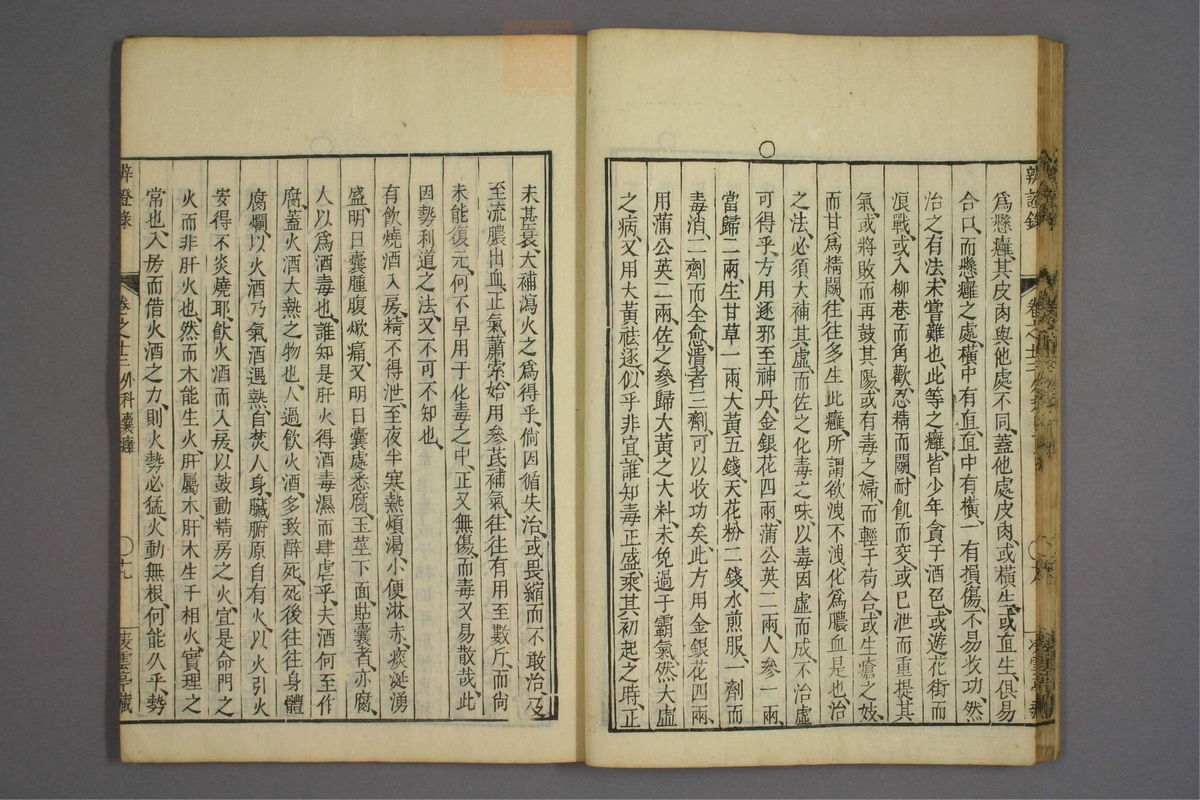 辨證錄 卷之十三
爲懸癰、其皮肉與他處不同、蓋他處皮肉、或橫生、或直生、俱易
合口、而懸癰之處、橫中有直、直中有橫、一有損傷、不易收功、然
治之有法、未嘗難也、此等之癰、皆少年貪于酒色、或遊花街而
浪戰、或入柳巷而角歡、忍精而鬭、耐飢而交、或已泄而重提其
氣、或將敗而再鼓其陽、或有毒之婦、而輕于苟合、或生瘡之妓、
而甘爲精鬭、往往多生此癰、所謂欲洩不洩、化爲膿血是也、治
之法、必須大補其虛、而佐之化毒之味、以毒因虛而成、不治虛
可得乎、方用逐邪至神丹、金銀花四兩、蒲公英二兩、人參一兩、
當歸二兩、生甘草一兩、大黃五錢、天花粉二錢、水煎服、一劑而
毒消、二劑而全愈、潰者三劑、可以收功矣、此方用金銀花四兩、
用蒲公英二兩、佐之參歸大黃之大料、未免過于霸氣、然大虛
之病、又用大黃祛逐、似乎非宜、誰知毒正盛、乘其初起之時、正
未甚衰、大補瀉火之爲得乎、倘因循失治、或畏縮而不敢治、及
至流膿出血、正氣蕭索、始用參芪補氣、往往有用至數斤、而尙
未能復元、何不早用于化毒之中、正又無傷、而毒又易散哉、此
因勢利道之法、又不可不知也、
有飲燒酒入房、精不得泄、至夜半寒熱煩渴、小便淋赤、痰涎湧
盛、明日囊腫腹焮痛、又明日囊處悉腐、玉莖下面、貼囊者亦腐、
人以爲酒毒也、誰知是肝火得酒毒濕而肆虐乎、夫酒何至作
腐、蓋火酒大熱之物也、人過飲火酒、多致醉死、死後往往身體
腐爛、以火酒乃氣酒、遇熱自焚、人身臟腑原自有火、以火引火
安得不炎燒耶、飲火酒而入房、以鼓動精房之火、宜是命門之
火、而非肝火也、然而木能生火、肝屬木、肝木生于相火、實理之
常也、入房而借火酒之力、則火勢必猛、火動無根、何能久乎、勢
辨證錄 卷之十三 外科囊癰 十九 凌雲亭藏